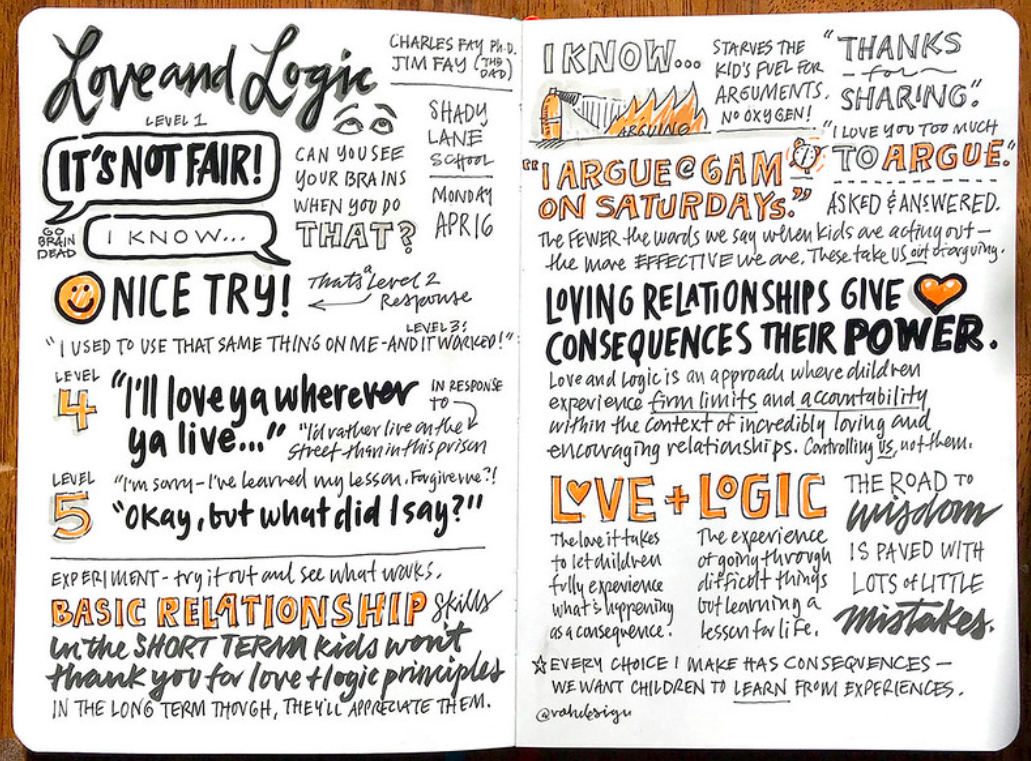 Love and Logic
CHARLES FAY Ph.D.
JIM FAY (THE DAD)
SHADY
LANE
SCHOOL
MONDAY
APR 16
LEVEL 1
IT'S NOT FAIR!
GO
BRAIN
DEAD
I KNOW...
CAN YOU SEE
YOUR BRAINS
WHEN YOU DO
THAT?
NICE TRY!
That's a Level 2
Response
LEVEL 3:
"I USED TO USE THAT SAME THING ON ME - AND IT WORKED!"
LEVEL
4
"I'll love ya wherever
ya live..."
IN RESPONSE
TO
"I'd rather live on the
street than in this prison
LEVEL
5
"I'm sorry - I've learned my lesson. Forgive me?!
"Okay, but what did I say?"
EXPERIMENT - try it out and see what works.
BASIC RELATIONSHIP skills
In the SHORT TERM kids won't
thank you for love + logic principles
IN THE LONG TERM THOUGH, THEY'LL APPRECIATE THEM.
I KNOW...
ARGUING
STARVES THE
KID'S FUEL FOR
ARGUMENTS.
NO OXYGEN!
"THANKS
- for -
SHARING."
"I LOVE YOU TOO MUCH
TO ARGUE."
"I ARGUE @ 6AM
ON SATURDAYS."
ASKED & ANSWERED.
The FEWER the words we say when kids are acting out -
the more EFFECTIVE we are. These take US out of arguing.
LOVING RELATIONSHIPS GIVE
CONSEQUENCES THEIR POWER.
Love and Logic is an approach where children
experience firm limits and accountability
within the context of incredibly loving and
encouraging relationships. Controlling us, not them.
LOVE + LOGIC
The love it takes
to let children
fully experience
what's happening
as a consequence.
The experience
of going through
difficult things
but learning a
lesson for life.
THE ROAD TO
wisdom
IS PAVED WITH
LOTS of LITTLE
mistakes.
☆ EVERY CHOICE I MAKE HAS CONSEQUENCES -
WE WANT CHILDREN TO LEARN FROM EXPERIENCES.
@vahdesign